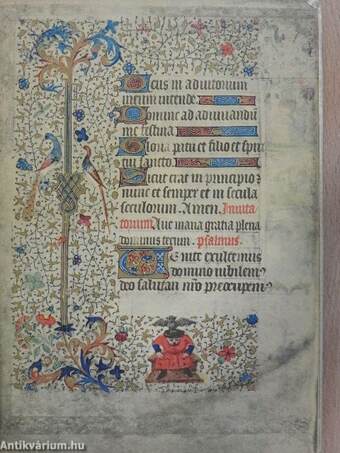 Deus in adiutorium
meum intende
Domine ad adiuuandū
me festina
Gloria patri et filio et spiri
tui sancto
Sicut erat in principio
nunc et semper et in secula
seculorum. Amen. Inuita
torium. Aue maria gratia plena
dominus tecum. psalmus.
Uenite exultemus
domino iubilem
deo salutari nr̄o preocupem
Antikvárium.hu